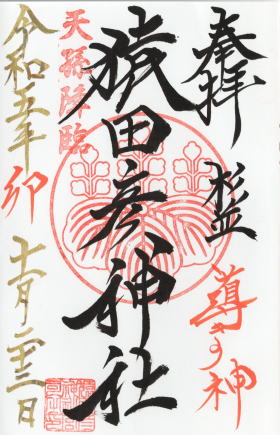 奉拝
杉並
導きの神
猿田彦神社
天孫降臨
令和五年
卯
十一月二十三日